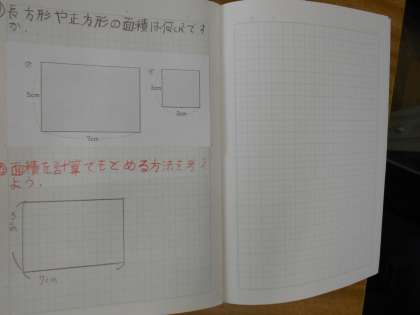 長方形や正方形の面積は何cm²です
か.
5cm
7cm
3cm
3cm
面積を計算でもとめる方法を考え
よう.
5
7cm